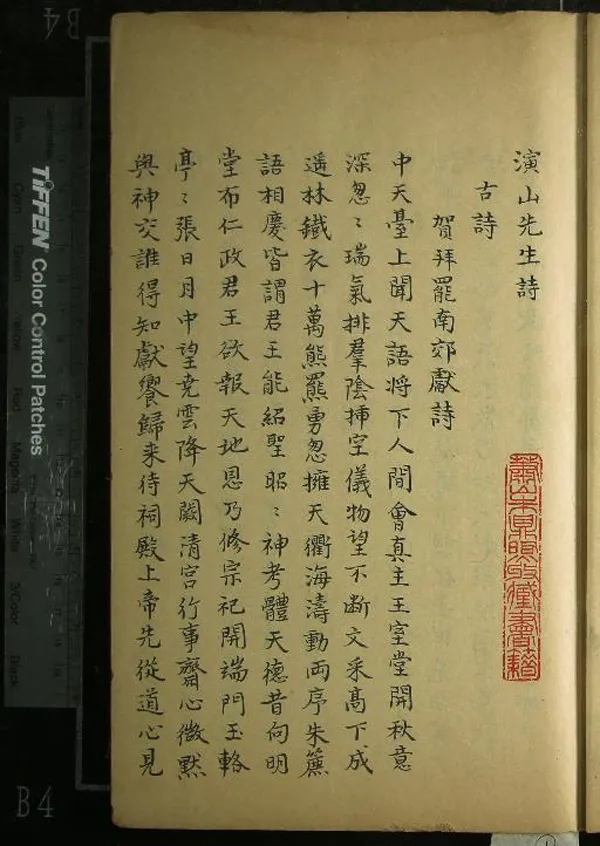 演山先生詩
古詩
賀拜罷南郊獻詩
中天臺上聞天語将下人間會真主王室堂開秋意
深怱〻瑞氣排羣陰揷空儀物望不斷文采髙下成
遥林鐵衣十萬熊羆勇忽擁天衢海濤動兩序朱簾
語相慶皆謂君王能紹聖昭〻神考體天德昔向明
堂布仁政君王欲報天地恩乃修宗祀開端門玉輅
亭〻張日月中望尭雲降天闕清宫行事齋心微黙
與神交誰得知獻饗歸来待祠殿上帝先從道心見
蕭山朱鼎煦收藏書籍
TIFFEN Color Control Patches
Blue Cyan Green Yellow Red Magenta White 3/Color Black
B4
B4